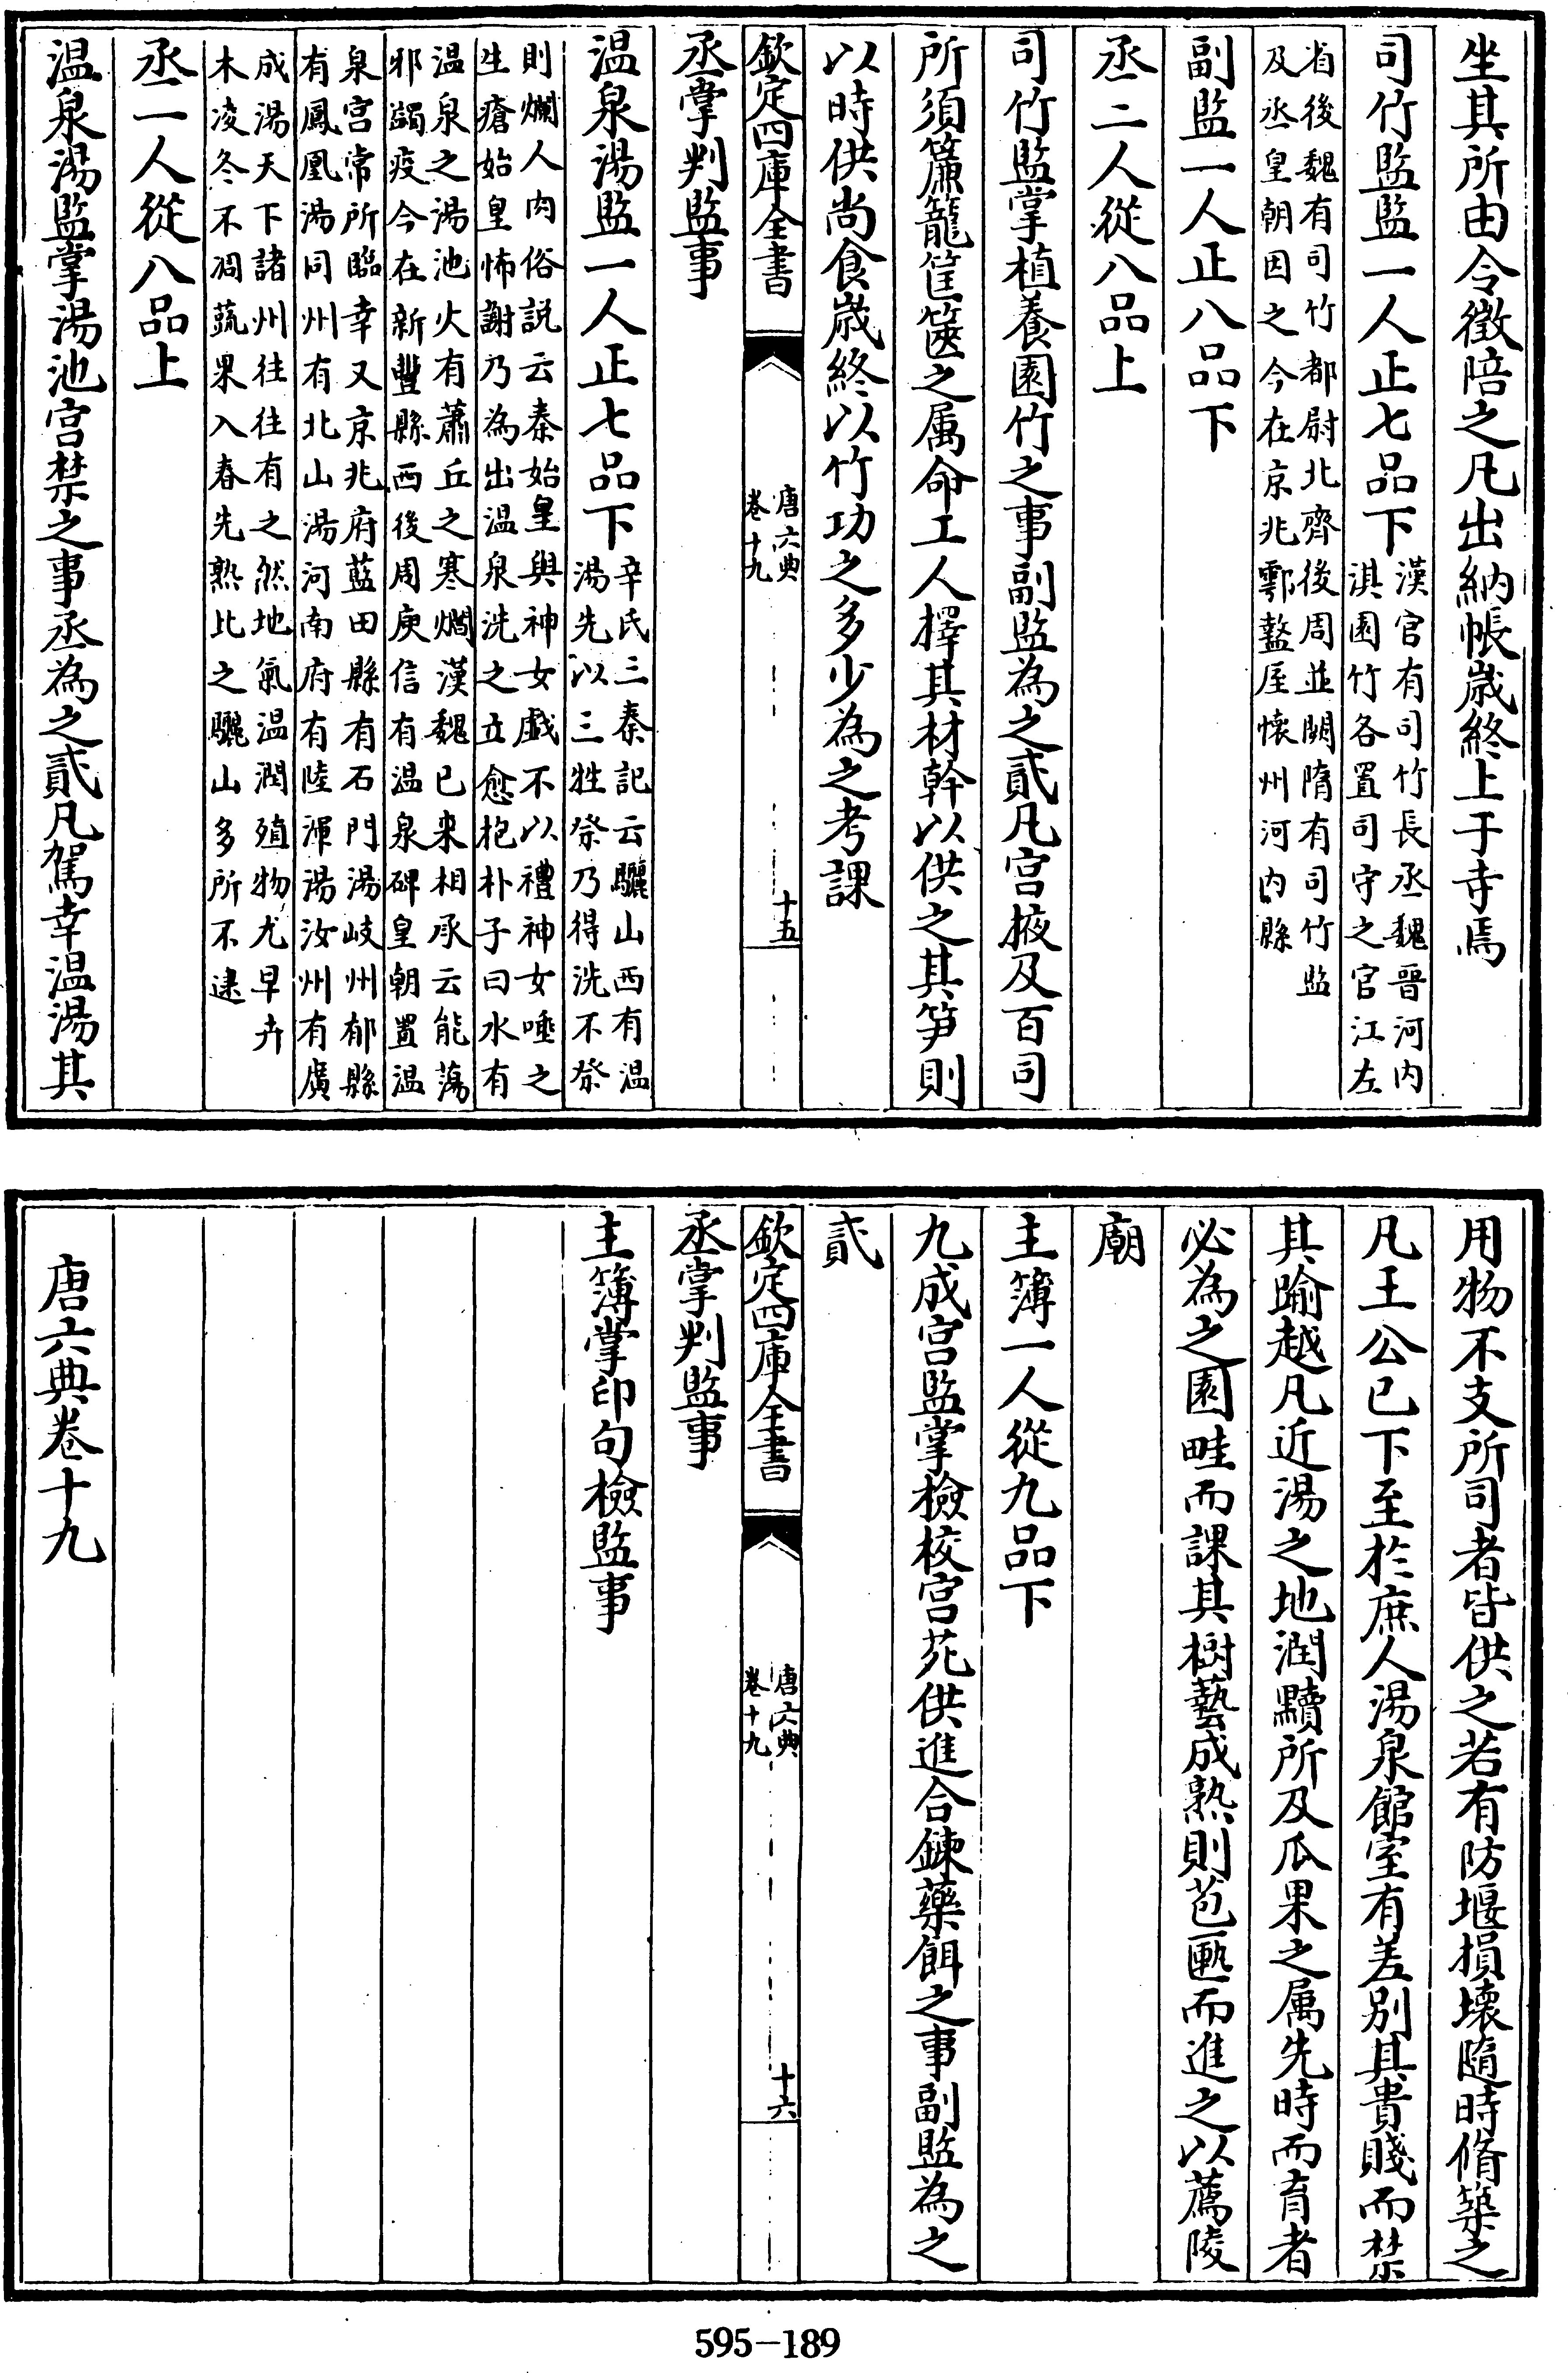 坐其所由令徵陪之凡出納帳歳終上于寺焉
司竹監監一人正七品下漢官有司竹長丞魏晉河内
淇園竹各置司守之官江左
省後魏有司竹都尉北齊後周並闕隋有司竹監
及丞皇朝因之今在京兆鄠盩厔懐州河内縣
副監一人正八品下
丞二人從八品上
司竹監掌植養園竹之事副監為之貳凡宫掖及百司
所須簾籠筐篋之属命工人擇其材幹以供之其笋則
以時供尚食歳終以竹功之多少為之考課
欽定四庫全書
唐六典
卷十九
十五
丞掌判監事
温泉湯監一人正七品下辛氏三秦記云驪山西有温
湯先以三牲祭乃得洗不祭
則爛人肉俗説云秦始皇與神女戲不以禮神女唾之
生瘡始皇怖謝乃為出温泉洗之立愈抱朴子曰水有
温泉之湯池火有蕭丘之寒燗漢魏已来相承云能蕩
邪蠲疫今在新豐縣西後周庾信有温泉碑皇朝置温
泉宫常所臨幸又京兆府藍田縣有石門湯岐州郁縣
有鳳凰湯同州有北山湯河南府有陸渾湯汝州有廣
成湯天下諸州往往有之然地氣温潤殖物尤早卉
木凌冬不凋蔬果入春先熟比之驪山多所不逮
丞一人從八品上
温泉湯監掌湯池宫禁之事丞為之貳凡駕幸温湯其
用物不支所司者皆供之若有防堰損壊隨時脩築之
凡王公已下至於庶人湯泉館室有差别其貴賤而禁
其踰越凡近湯之地潤黷所及瓜果之属先時而育者
必為之園畦而課其樹藝成熟則苞匭而進之以薦陵
廟
主簿一人從九品下
九成宫監掌檢校宫苑供進合鍊藥餌之事副監為之
貳
欽定四庫全書
唐六典
卷十九
十六
丞掌判監事
主簿掌印句檢監事
唐六典卷十九
595-189